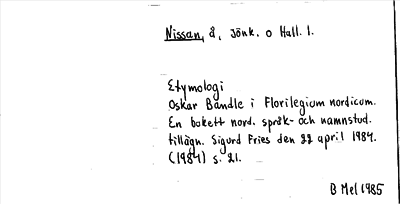 Nissan, å, Jönk. o Hall. l.
Etymologi
Oskar Bandle i Florilegium nordicum.
En bukett nord. språk- och namnstud.
tillägn. Sigurd Fries den 22 april 1984.
(1984) s. 21.
B Mel 1985